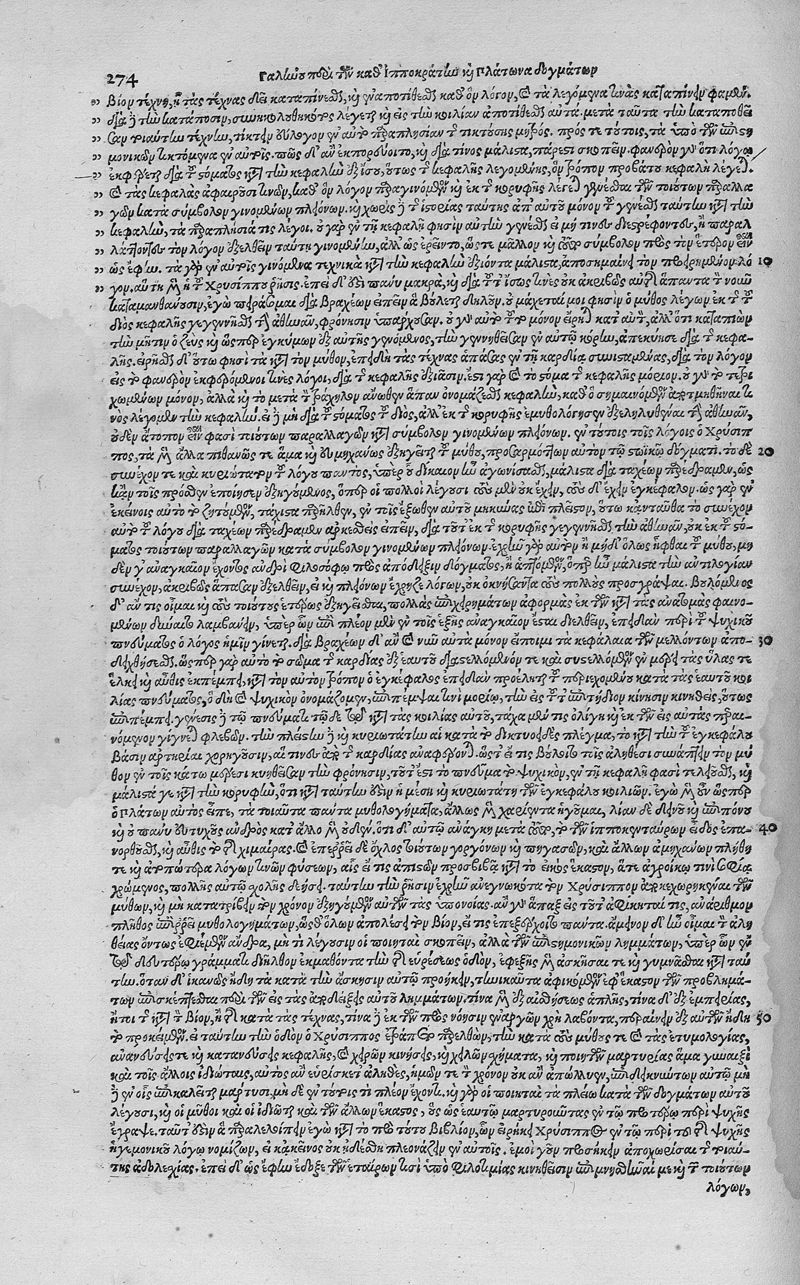 274 Γαληνοῦ περὶ τῶν καθ' Ἱπποκράτην καὶ Πλάτωνα δογμάτων
βίον τέχνη, ἢ τὰς τέχνας δεῖ καταπίνεσθαι, καὶ ἐναποτίθεσθαι καθ' ὃν λόγον, καὶ τὰ λεγόμενά τινας καταπίνειν φαμέν.
διὰ δὲ τὴν κατάποσιν, συνηκολουθηκότως λέγεται καὶ εἰς τὴν κοιλίαν ἀποτίθεσθαι αὐτά. μετὰ ταῦτα τὴν καταποθεῖ
σαν τοιαύτην τέχνην, τίκτειν εὔλογον ἐν αὐτῷ παραπλησίαν τῇ τικτούσῃ μητρός. πρός τε τούτοις, τὰ ὑπὸ τῶν ἐπιστη
μονικῶν τικτόμενα ἐν αὐτοῖς. πῶς δ' ἂν ἐκπορεύοιτο, καὶ διὰ τίνος μάλιστα, πάρεστι σκοπεῖν. φανερὸν γὰρ ὅτι λόγῳ
ἐκφέρεται διὰ τοῦ στόματος κατὰ τὴν κεφαλὴν ἐξιὸν, οὕτως τῆς κεφαλῆς λεγομένης, ὃν τρόπον προβάτου κεφαλὴ λέγεται.
καὶ τὰς κεφαλὰς ἀφαιροῦσί τινων, καθ' ὃν λόγον παραγινόμενον καὶ ἐκ τῆς κορυφῆς λέγεται γενέσθαι τῶν τοιούτων παραλλα
γῶν κατὰ σύμβολον γινομένων πλειόνων. καὶ χωρὶς δὲ τῆς ἱστορίας ταύτης ἀπ' αὐτοῦ μόνου τοῦ γενέσθαι ταύτην κατὰ τὴν
κεφαλὴν, τὰ παραπλήσιά τις λέγοι. οὐ γὰρ ἐν τῇ κεφαλῇ φησιν αὐτὴν γενέσθαι εἰ μή τινες διεστρέφοντες, ἢ παραλ
λάττοντες τὸν λόγον ἐξελθεῖν ταύτῃ γινομένην, ἀλλ' ὡς ἐρεῖν το, ὥστε μᾶλλον καὶ τοῦτο σύμβολον πρὸς τὸν ἕτερον εἶναι
ὡς ἔφην. τὰ γὰρ ἐν αὐτοῖς γινόμενα τεχνικὰ κατὰ τὴν κεφαλὴν ἐξιόντα μάλιστα, ἀποσημαίνει τὸν προειρημένον λό 10
γον. αὕτη μὲν ἡ τοῦ Χρυσίππου ῥῆσις. ἐπεὶ δ' ἐστὶ πάνυ μακρὰ, καὶ διὰ τοῦτ' ἴσως τινὲς οὐκ ἀκριβῶς αὐτῆς ἅπαντα τὸν νοῦν
καταμανθάνουσιν, ἐγὼ πειράσομαι διὰ βραχέων εἰπεῖν ἃ βούλεται δηλοῦν. οὐ μάχεταί μοι φησὶν ὁ μῦθος λέγων ἐκ τῆς τοῦ
διὸς κεφαλῆς γεγεννῆσθαι τὴν ἀθηνᾶν, φρόνησιν ὑπάρχουσαν. οὐ γὰρ αὐτὸ τοῦτο μόνον εἴρηται κατ' αὐτὴν, ἀλλ' ὅτι καταπιὼν
τὴν μῆτιν ὁ ζεὺς καὶ ὥσπερ ἐγκύμων ἐξ αὐτῆς γενόμενος, τὴν γεννηθεῖσαν ἐν αὐτῷ κόρην, ἀπεκύησε διὰ τῆς κεφα-
λῆς. εἰρῆσθαι δ' οὕτω φησὶ τὰ κατὰ τὸν μῦθον, ἐπειδὴ τὰς τέχνας ἁπάσας ἐν τῇ καρδίᾳ συνισταμένας, διὰ τὸν λόγον
εἰς τὸ φανερὸν ἐκφερόμενοι τινὲς λόγοι, διὰ τῆς κεφαλῆς ἐξίασιν. ἔστι γὰρ καὶ τὸ στόμα τῆς κεφαλῆς μόριον. οὐ γὰρ τὸ τετρι
χωμένον μόνον, ἀλλὰ καὶ τὸ μετὰ τὸν τράχηλον ἄνωθεν ἅπαν ὀνομάζεσθαι κεφαλὴν, καθ' ὃ σημαινόμενον ἀποτμηθῆναί τι
νος λέγομεν τὴν κεφαλήν. εἰ δὲ μὴ διὰ τοῦ στόματος τοῦ διὸς, ἀλλ' ἐκ τῆς κορυφῆς ἐμυθολόγησαν ἐξεληλυθέναι τὴν ἀθηνᾶν,
οὐδὲν ἄτοπον εἶναί φασι τοιούτων παραλλαγῶν κατὰ σύμβολον γινομένων πλειόνων. ἐν τούτοις τοῖς λόγοις ὁ Χρύσιπ
πος, τὰ μὲν ἄλλα πιθανῶς τε ἅμα καὶ εὐμηχάνως ἐξηγεῖται τοῦ μύθου, προσαρμόττων αὐτὸν τῷ στωϊκῷ δόγματι. τὸ δὲ 20
συνέχον τε καὶ κυριώτατον τοῦ λόγου παντὸς, ὑπὲρ οὗ δίκαιον ἦν ἀγωνίσασθαι, μάλιστα διὰ ταχέων παρέδραμεν, ὡς
κἀν τοῖς πρόσθεν ἐποίησεν ἐξηγούμενος, ὅπερ οἱ πολλοὶ λέγουσι τοὺς μὲν οὐκ ἔχειν, τοὺς δ' ἔχειν ἐγκέφαλον. ὡς γὰρ ἐν
ἐκείνοις αὐτὸ τὸ ζητούμενον, τάχιστα παρῆλθεν, ἐν τοῖς ἔξωθεν αὐτοῦ μηκύνας ἐπὶ πλεῖστον, οὕτω κἀνταῦθα τὸ συνέχον
αὐτὸ τοῦ λόγου διὰ ταχέων παρέδραμεν ἀρκεσθεὶς εἰπεῖν, διὰ τοῦτ' ἐκ τῆς κορυφῆς γεγεννῆσθαι τὴν ἀθηνᾶν, οὐκ ἐκ τοῦ στό-
ματος τοιούτων παραλλαγῶν κατὰ σύμβολον γινομένων πλειόνων. ἐχρῆν γὰρ αὐτὸν ἢ μηδ' ὅλως ἧφθαι τοῦ μύθου, μη
δὲν γ' ἀναγκαῖον ἔχοντος ἀνδρὶ φιλοσόφῳ πρὸς ἀπόδειξιν δόγματος, ἢ ἁπτόμενον, ὅπερ ἦν μάλιστα τὴν ἀντιλογίαν
συνέχον, ἀκριβῶς ἅπασαν ἐξελθεῖν, εἰ καὶ πλειόνων ἔχρῃζε λόγων, οὐκ ὀκνήσαντα τοὺς πολλοὺς προσγράψαι. βουλόμενος
δ' ἄν τις οἶμαι καὶ τοὺς τοιούτους ἑτέρως ἐξηγεῖσθαι, πολλὰς ἐπιχειρημάτων ἀφορμὰς ἐκ τῶν κατὰ τὰς ἀνατομὰς φαινο-
μένων δύναιτο λαμβάνειν, ὑπὲρ ὧν ἐπὶ πλέον μὲν ἐν τοῖς ἑξῆς ἀναγκαῖον ἔσται διελθεῖν, ἐπειδὰν περὶ τοῦ ψυχικοῦ
πνεύματος ὁ λόγος ἡμῖν γίνηται. διὰ βραχέων δ' ἂν καὶ νῦν αὐτὰ μόνον εἴποιμι τὰ κεφάλαια τῶν μελλόντων ἀπο- 30
δειχθήσεσθαι. ὥσπερ γὰρ αὐτὸ τὸ σῶμα τῆς καρδίας ἐξ ἑαυτοῦ διαστελλόμενόν τε καὶ συστελλόμενον ἐν μέρει τὰς ὕλας τε
ἕλκει καὶ αὖθις ἐκπέμπει, κατὰ τὸν αὐτὸν τρόπον ὁ ἐγκέφαλος ἐπειδὰν προέληται τοῦ περιεχομένου κατὰ τὰς ἑαυτοῦ κοι
λίας πνεύματος, ὃ δὴ καὶ ψυχικὸν ὀνομάζομεν, ἐπιπέμψαι τινὶ μορίῳ, τὴν εἰς τὸ ἐπιτήδειον κίνησιν κινηθεὶς, οὕτως
ἐπιπέμπει. γένεσις δὲ τῷ πνεύματι τῷδε καὶ κατὰ τὰς κοιλίας αὐτοῦ, τάχα μέν τις ὀλίγη καὶ ἐκ τῶν εἰς αὐτὰς περαι-
νόμενον γίγνεται φλεβῶν. τὴν πλείστην δὲ καὶ κυριωτάτην αἱ κατὰ τὸ δικτυοειδὲς πλέγμα, τὸ κατὰ τὴν τοῦ ἐγκεφάλου
βάσιν ἀρτηρίαι χορηγοῦσιν, αἵτινες ἀπὸ τῆς καρδίας ἀναφέρονται. ὥστ' εἴ τις βούλοιτο τοῖς ἀληθέσι συνάπτειν τὸν μῦ
θον ἐν τοῖς κάτω μέρεσι κυηθεῖσαν τὴν φρόνησιν, τοῦτ' ἔστι τὸ πνεῦμα τὸ ψυχικὸν, ἐν τῇ κεφαλῇ φασὶ τελεῖσθαι, καὶ
μάλιστά γε κατὰ τὴν κορυφὴν, ὅτι κατὰ ταύτην ἐστὶν ἡ μέση καὶ κυριωτάτη τῶν ἐγκεφάλου κοιλιῶν. ἐγὼ μὲν οὖν ὥσπερ
ὁ Πλάτων αὐτὸς εἶπε, τὰ τοιαῦτα πάντα μυθολογήματα, ἄλλως μὲν χαρίεντα ἡγοῦμαι, λίαν δὲ δεινοῦ καὶ ἐπιπόνου
καὶ οὐ πάνυ εὐτυχοῦς ἀνδρὸς κατ' ἄλλο μὲν οὐδὲν, ὅτι δ' αὐτῷ ἀνάγκη μετὰ τοῦτο, τὸ τῶν ἱπποκενταύρων εἶδος ἐπα- 40
νορθοῦσθαι, καὶ αὖθις τὸ τῆς χιμαίρας. καὶ ἐπιῤῥεῖ δὲ ὄχλος τοιούτων γοργόνων καὶ πηγασῶν, καὶ ἄλλων ἀμηχάνων πλήθη
τε καὶ ἀποτώτερα λόγων τινῶν φύσεων, αἷς εἴ τις ἀπιστῶν προσβιβᾷ κατὰ τὸ εἰκὸς ἕκαστον, ἅτε ἀγροίκῳ τινὶ σοφίᾳ
χρώμενος, πολλῆς αὐτῷ σχολῆς δεήσει. ταύτην τὴν ῥῆσιν ἐχρῆν ἀνεγνωκότα τὸν Χρύσιππον ἀποκεχωρηκέναι τῶν
μύθων, καὶ μὴ κατατρίβειν τὸν χρόνον ἐξηγούμενον αὐτῶν τὰς ὑπονοίας. ἂν γὰρ ἅπαξ εἰς τοῦτ' ἀφίκηταί τις, ἀνάριθμον
πλῆθος ἐπιῤῥεῖ μυθολογημάτων, ὥσθ' ὅλον ἀπολέσει τὸν βίον, εἴ τις ἐπεξέρχοιτο πάντα. ἄμεινον δ' ἦν οἶμαι τὸν ἀλη
θείας ὄντως ἐφιέμενον ἄνδρα, μὴ τί λέγουσιν οἱ ποιηταὶ σκοπεῖν, ἀλλὰ τῶν ἐπιστημονικῶν λημμάτων, ὑπὲρ ὧν ἐν
τῷ δευτέρῳ γράμματι διῆλθον ἐκμαθόντα τὴν τῆς εὑρέσεως ὁδὸν, ἐφεξῆς μὲν ἀσκῆσαί τε καὶ γυμνάσασθαι κατὰ ταύ
την. ὅταν δ' ἱκανῶς ἤδη τὰ κατὰ τὴν ἄσκησιν αὐτῷ προήκῃ, τηνικαῦτα ἀφικόμενον ἐφ' ἕκαστον τῶν προβλημά-
των ἐπισκέπτεσθαι περὶ τῶν εἰς τὰς ἀποδείξεις αὐτοῦ λημμάτων, τίνα μὲν ἐξ αἰσθήσεως ἁπλῆς, τίνα δ' ἐξ ἐμπειρίας,
ἤτοι τῆς κατὰ τὸν βίον, ἢ τῆς κατὰ τὰς τέχνας, τίνα δ' ἐκ τῶν πρὸς νόησιν ἐναργῶν χρὴ λαβόντα, περαίνειν ἐξ αὐτῶν ἤδη 50
τὸ προκείμενον. εἰ ταύτην τὴν ὁδὸν ὁ Χρύσιππος ἐτράπετο παρελθὼν, τήν κατὰ τοὺς μύθους τε καὶ τὰς ἐτυμολογίας,
ἀνανευούσης τε καὶ κατανευούσης κεφαλῆς, καὶ χειρῶν κινήσεις, καὶ χειλῶν σχήματα, καὶ ποιητῶν μαρτυρίας ἅμα γυναιξὶ
καὶ τοῖς ἄλλοις ἰδιώταις, αὐτὸς ἂν εὑρίσκετ' ἀληθὲς, ἡμῶν τε τὸν χρόνον οὐκ ἂν ἀπώλλυεν, ἐπιδεικνυόντων αὐτῷ μὴ
δ' ἐν οἷς ἐπικαλεῖται μάρτυσι, μηδὲν ἐν τούτοις τι πλέον ἔχοντι. καὶ γὰρ οἱ ποιηταὶ τὰ πλείω κατὰ τῶν δογμάτων αὐτοῦ
λέγουσι, καὶ οἱ μῦθοι καὶ οἱ ἰδιῶται καὶ τῶν ἄλλων ἕκαστος, οὓς ὡς ἑαυτῷ μαρτυροῦντας ἐν τῷ προτέρῳ περὶ ψυχῆς
ἔγραψε. ταῦτ' οὖν ἃ παραλελοίπειν ἐγὼ κατὰ τὸ πρὸ τούτου βιβλίον, ὧν εἰρήκει Χρύσιππος ἐν τῷ περὶ τοῦ τῆς ψυχῆς
ἡγεμονικοῦ λόγῳ νομίζων, εἰ κἀκεῖνος οὐκ ᾐδέσθη πλεονάζειν ἐν αὐτοῖς. ἐμοὶ γοῦν προσήκειν ἀποχωρῆσαι τῆς τοιαύ-
της ἀδολεσχίας. ἐπεὶ δ' ὡς ἔφην ἔδοξε τῶν ἑταίρων τισὶ ὑπὸ φιλοτιμίας κινηθεῖσιν ἐπιμνησθῆναί με καὶ τῶν τοιούτων
λόγων,